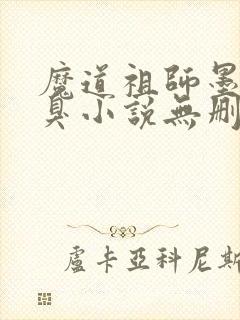 魔道祖師墨
臭小説無刪
盧卡亞科尼斯